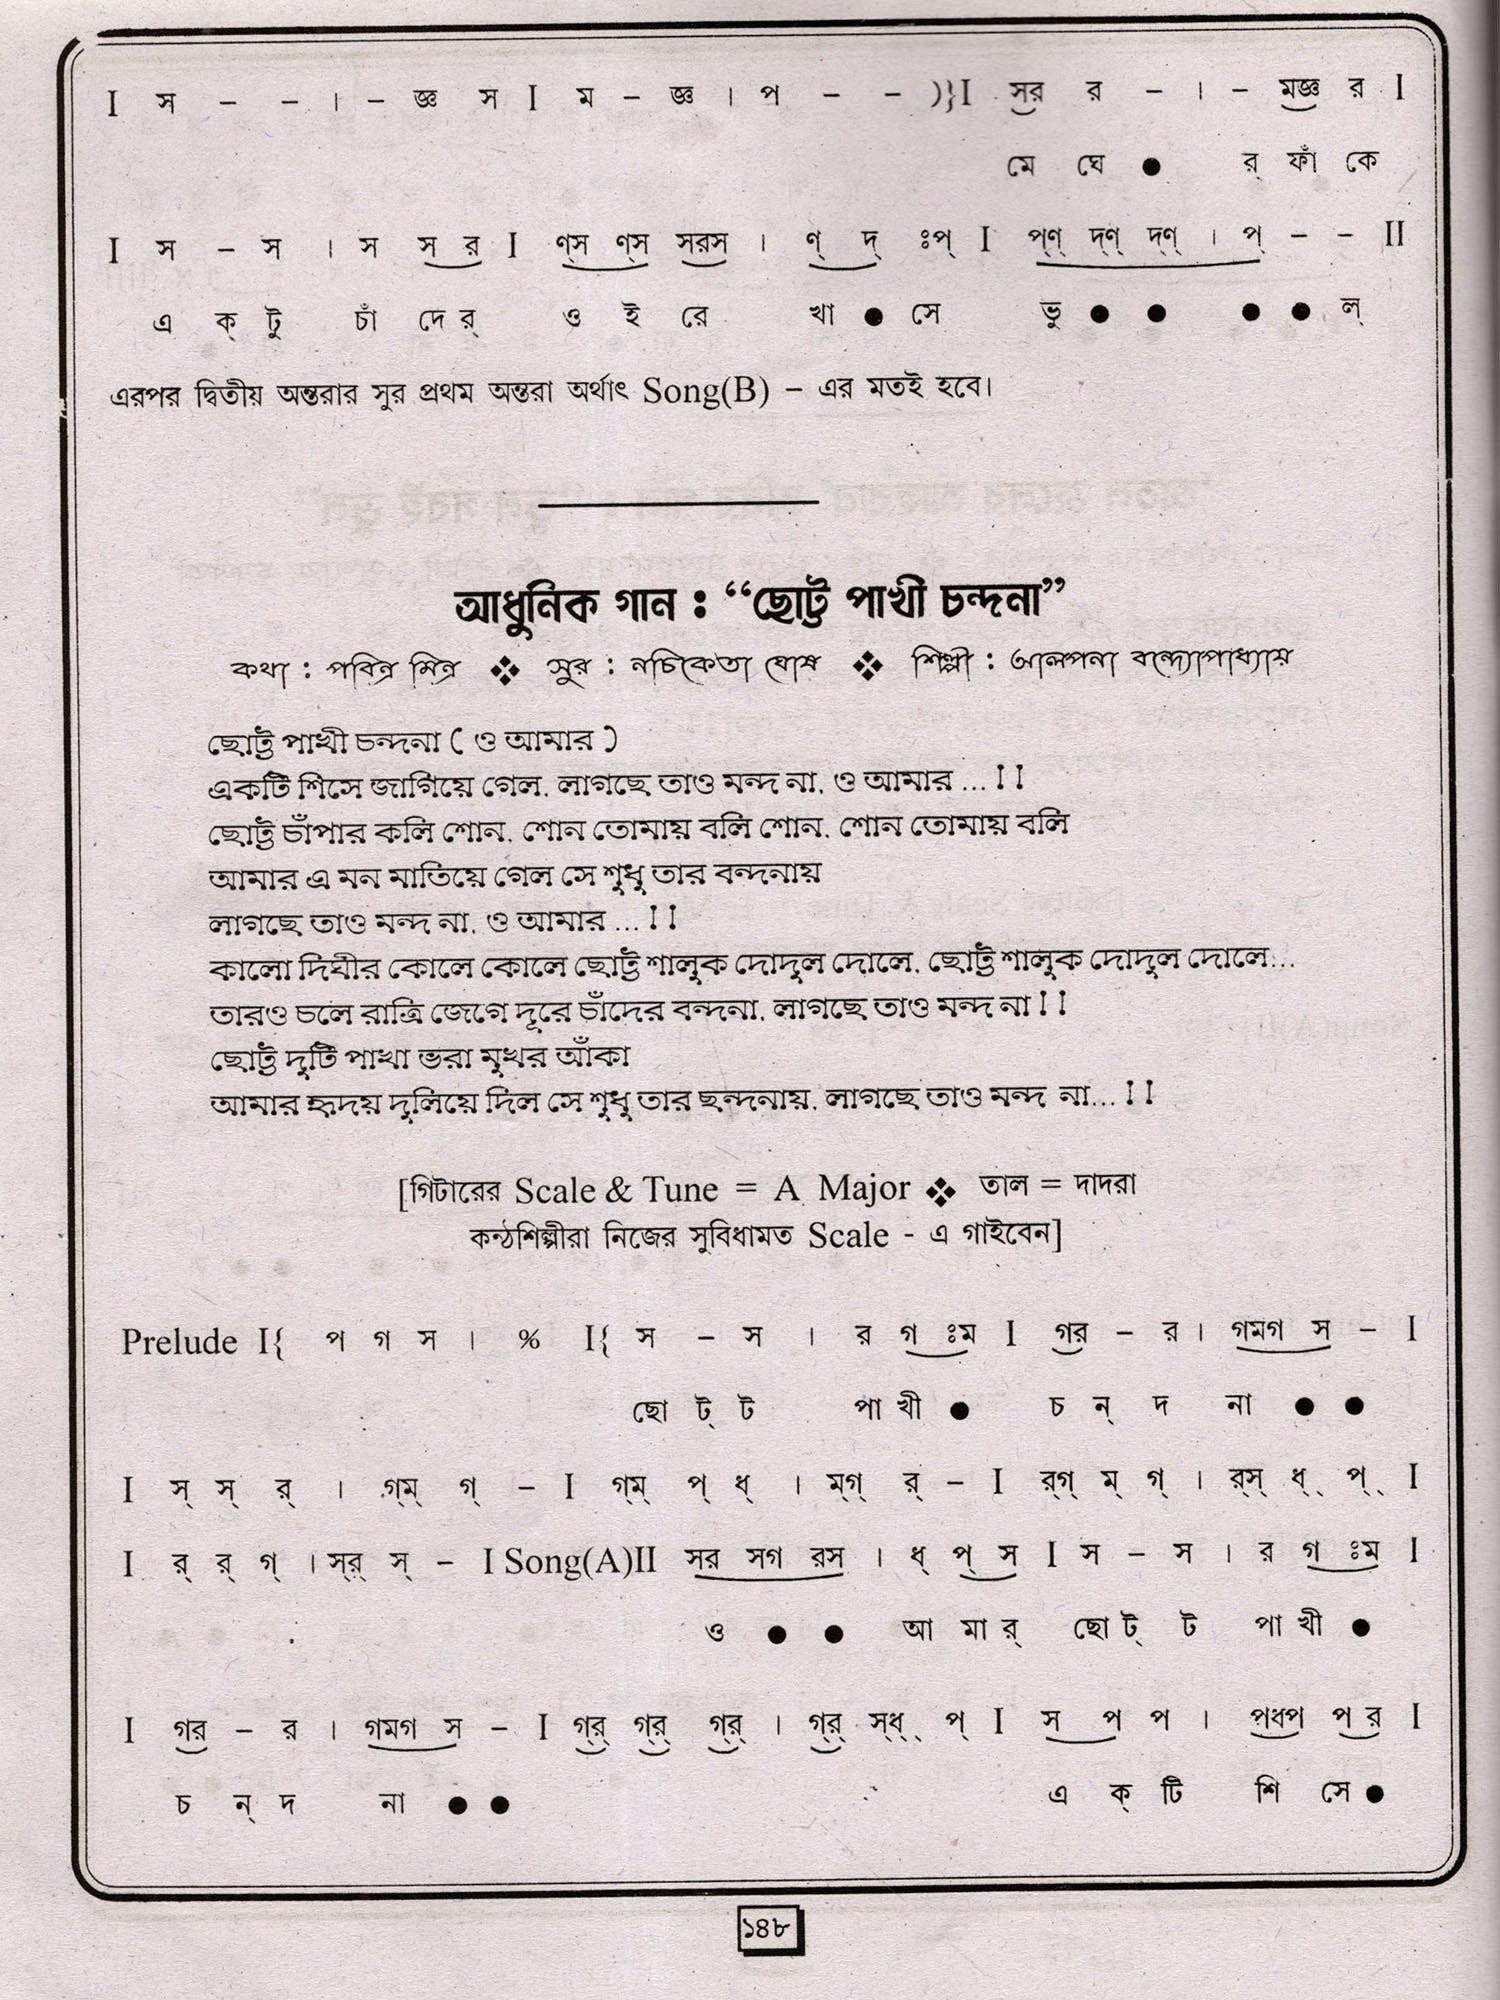 I স – – । – জ্ঞ স I ম – জ্ঞ । প – – )}I সর র – । – মজ্ঞ র I
মে ঘে ● র্ ফাঁ কে
I স – স । স স র I ণ্স ণ্স সরস । ণ্ দ্ ঃপ্ I প্ণ্ দ্ণ্ দ্ণ্ । প্ – – II
এ ক্ টু চাঁ দের্ ও ই রে খা ● সে ভু ● ● ● ● ল্
এরপর দ্বিতীয় অন্তরার সুর প্রথম অন্তরা অর্থাৎ Song(B) – এর মতই হবে।
আধুনিক গান : “ছোট্ট পাখী চন্দনা”
কথা : পবিত্র মিত্র ❖ সুর : নচিকেতা ঘোষ ❖ শিল্পী : আলপনা বন্দ্যোপাধ্যায়
ছোট্ট পাখী চন্দনা ( ও আমার )
একটি শিসে জাগিয়ে গেল, লাগছে তাও মন্দ না, ও আমার ... ।।
ছোট্ট চাঁপার কলি শোন, শোন তোমায় বলি শোন, শোন তোমায় বলি
আমার এ মন মাতিয়ে গেল সে শুধু তার বন্দনায়
লাগছে তাও মন্দ না, ও আমার ... ।।
কালো দিঘীর কোলে কোলে ছোট্ট শালুক দোদুল দোলে, ছোট্ট শালুক দোদুল দোলে...
তারও চলে রাত্রি জেগে দূরে চাঁদের বন্দনা, লাগছে তাও মন্দ না।।
ছোট্ট দুটি পাখা ভরা মুখর আঁকা
আমার হৃদয় দুলিয়ে দিল সে শুধু তার ছন্দনায়, লাগছে তাও মন্দ না... ।।
[গিটারের Scale & Tune = A Major ❖ তাল = দাদরা
কন্ঠশিল্পীরা নিজের সুবিধামত Scale - এ গাইবেন]
Prelude I{ প গ স । % I{ স – স । র গ ঃম I গর – র । গমগ স – I
ছো ট্ ট পা খী ● চ ন্ দ না ● ●
I স্ স্ র্ । গ্ম্ গ্ – I গ্ম্ প্ ধ্ । ম্গ্ র্ – I র্গ্ ম্ গ্ । র্স্ ধ্ প্ I
I র্ র্ গ্ । স্র্ স্ – I Song(A)II সর সগ রস । ধ্ প্ স I স – স । র গ ঃম I
ও ● ● আ মা র্ ছো ট্ ট পা খী ●
I গর – র । গমগ স – I গ্র্ গ্র্ গ্র্ । গ্র্ স্ধ্ প্ I স প প । পধপ প র I
চ ন্ দ না ● ● এ ক্ টি শি সে ●
১৪৮